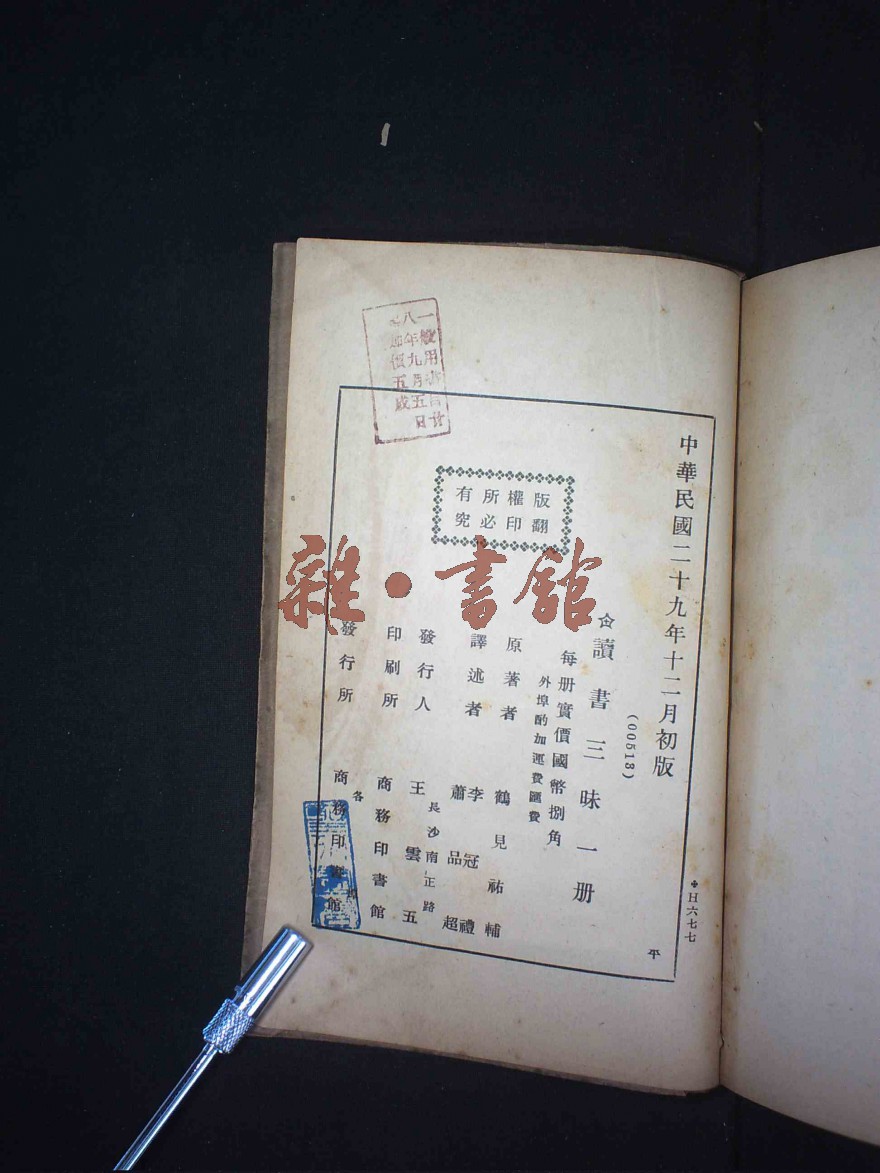 中華民國二十九年十二月初版
(00513)
讀書三昧一册
每册實價國幣捌角
外埠酌加運費匯費
原著者 鶴見祐輔
譯述者 李冠禮 蕭品超
發行人 王雲五
長沙南正路
印刷所 商務印書館
發行所 商務印書館
各埠
版權所有
翻印必究
一般用書自廿
八年九月五日
起加價五成
日六七七
平
雜·書館